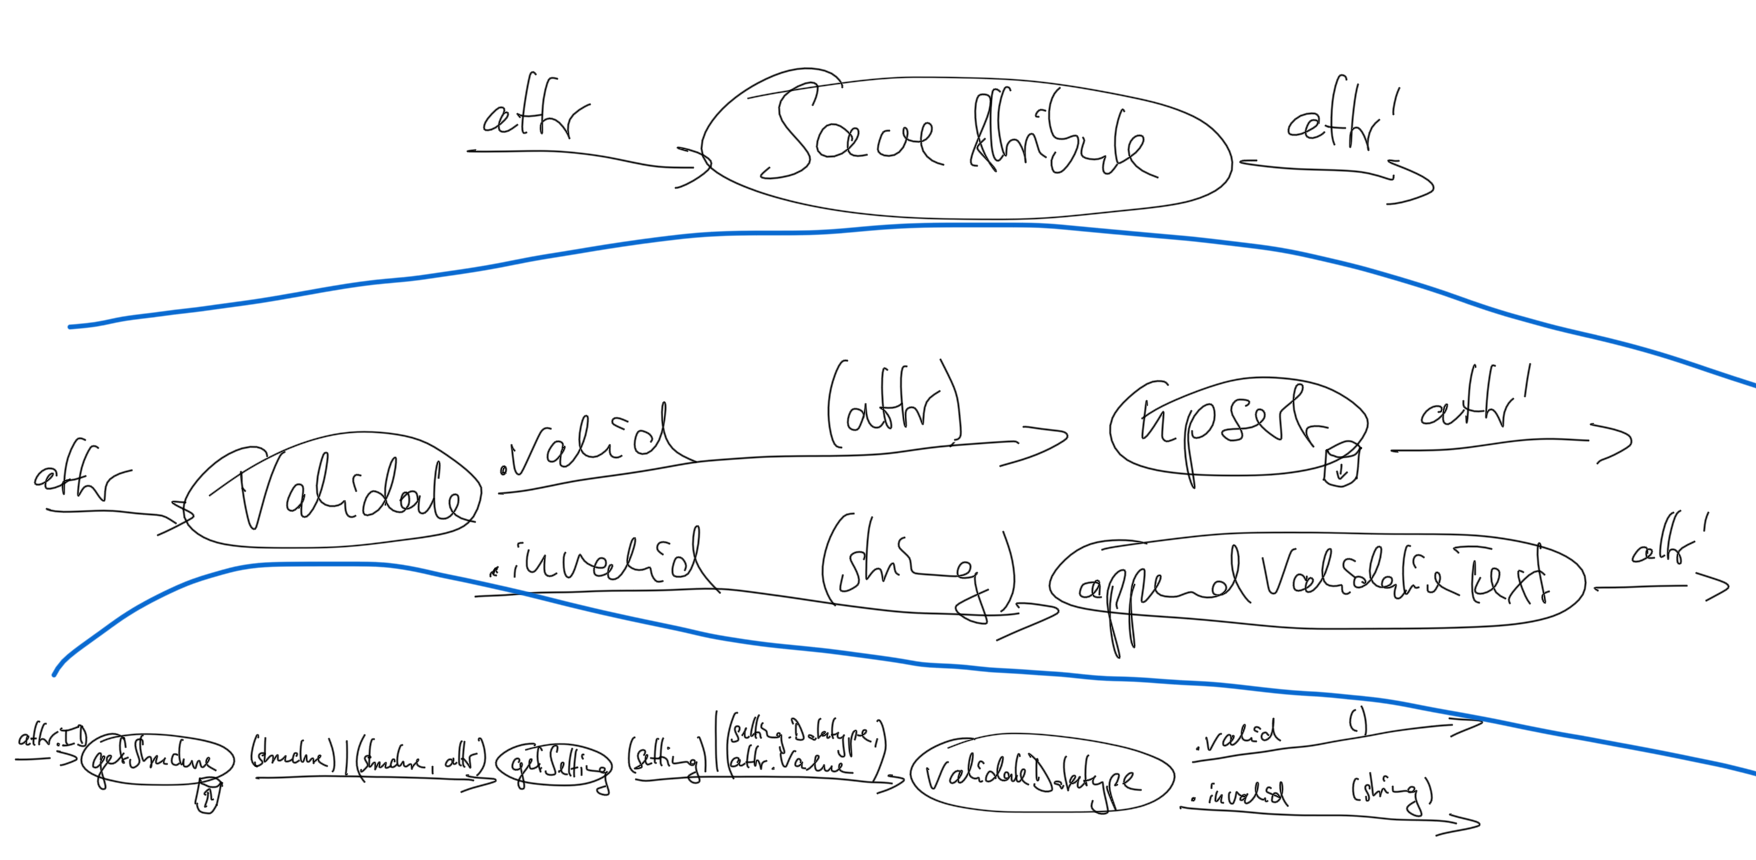 attr Save Attribute attr'
attr Validate .valid (attr) upsert attr'
.invalid (string) append Validation Text attr'
attr.ID getStructure (structure) | (structure, attr) getSetting (setting) | (setting.Datatype, attr.Value) validateDatatype .valid ()
.invalid (string)